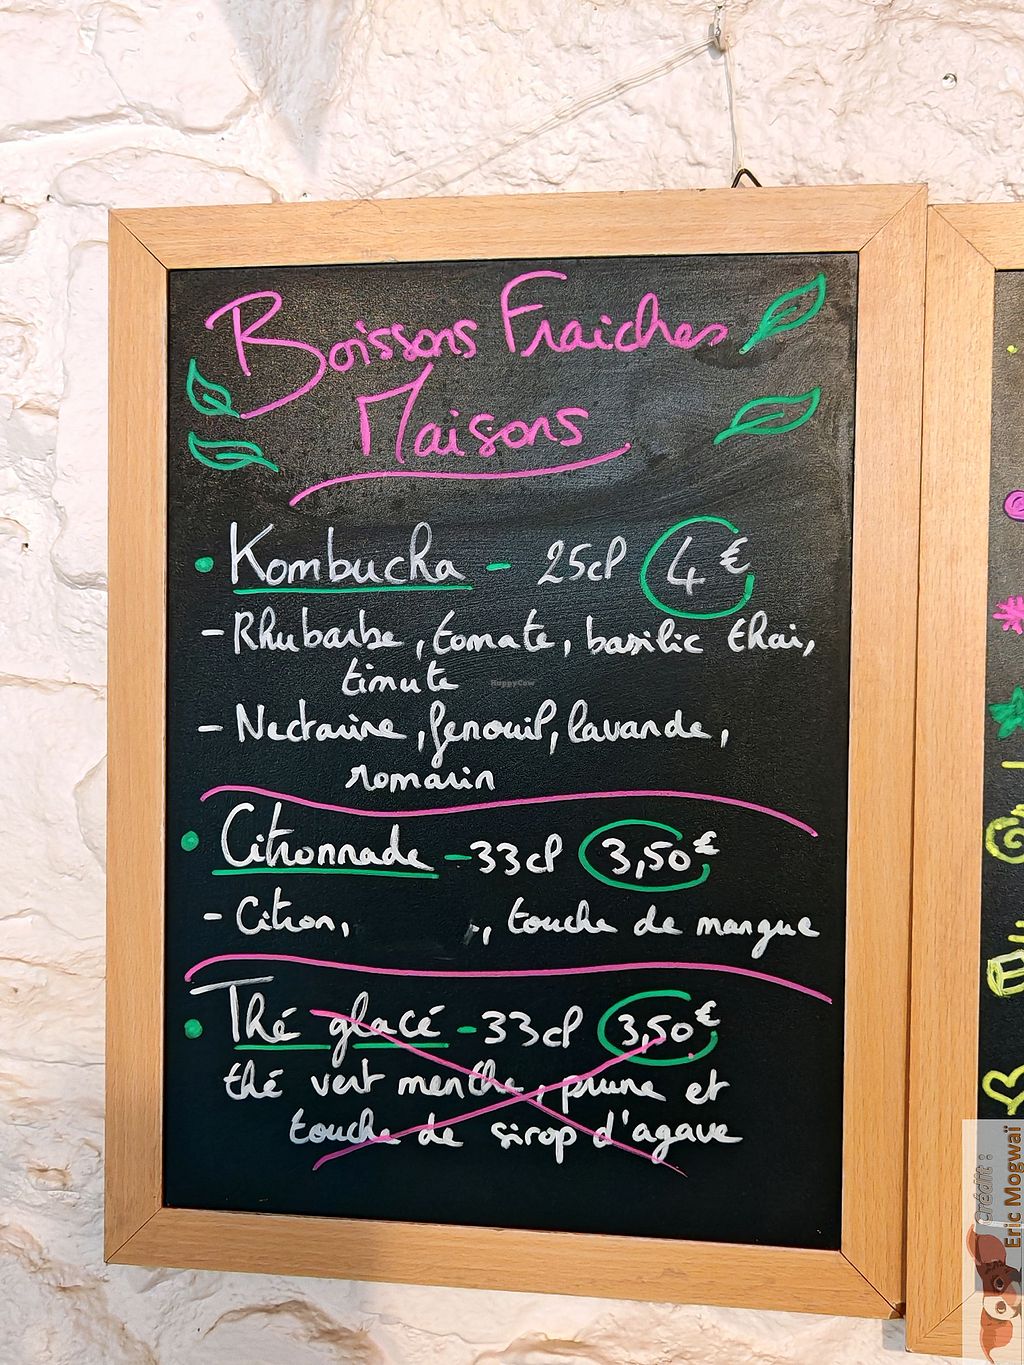 Boissons Fraiches
Maisons
• Kombucha - 25cl 4€
- Rhubarbe, tomate, basilic thai,
timute
HappyCow
- Nectarine, fenouil, lavande,
romarin
• Citronnade - 33cl 3,50€
- Citron, , touche de mangue
• Thé glacé - 33cl 3,50€
thé vert menthe, prune et
touche de sirop d'agave
Crédit :
Eric Mogwaï